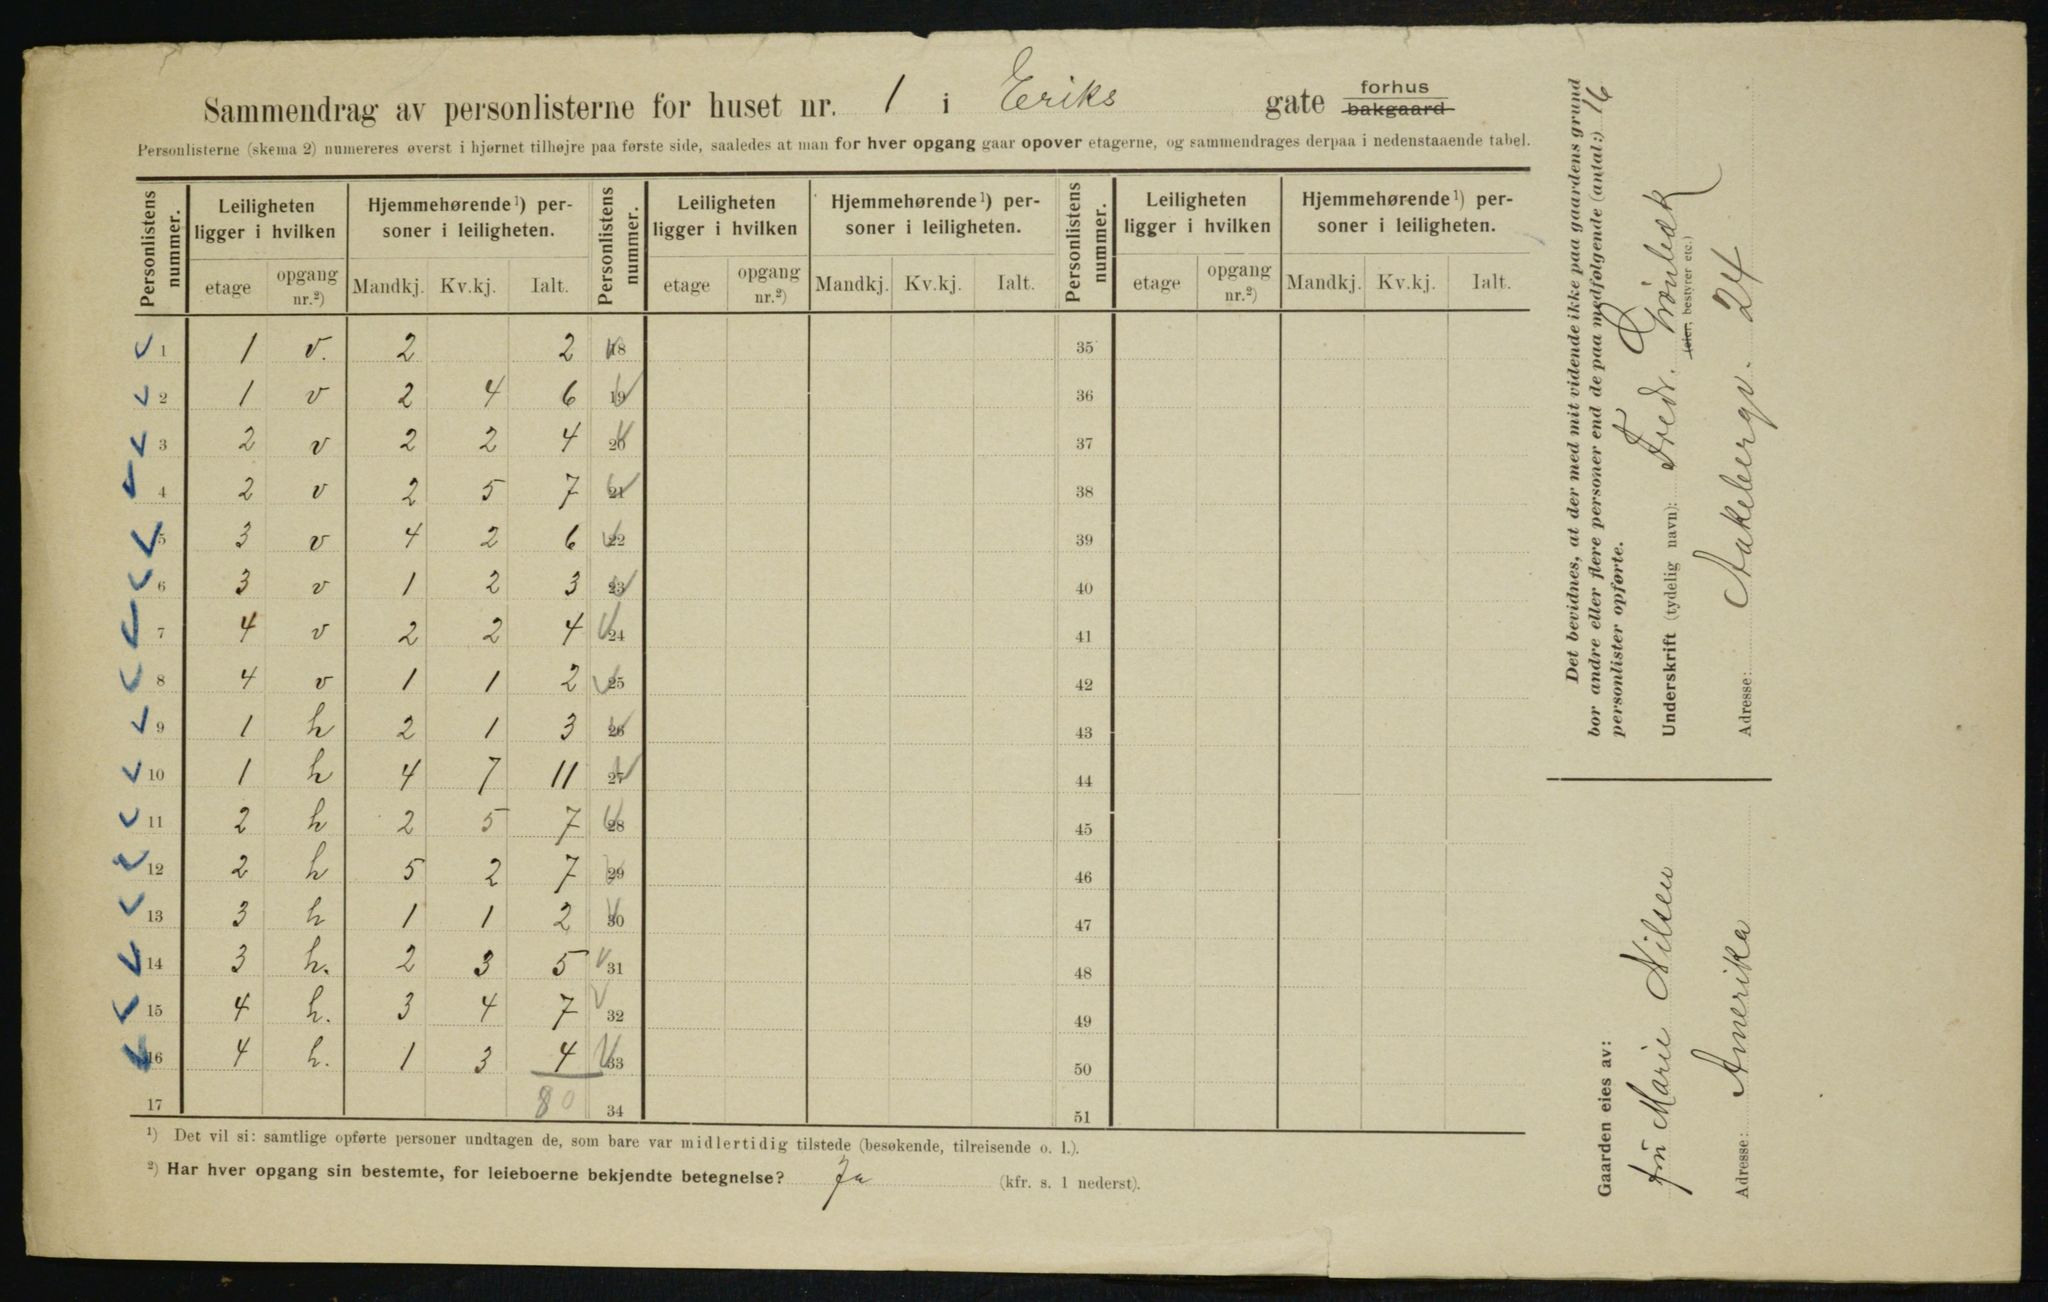 Sammendrag av personlisterne for huset nr. 1 i Eriks gate forhus bakgaard
Personlisterne (skema 2) numereres øverst i hjørnet tilhøjre paa første side, saaledes at man for hver opgang gaar opover etagerne, og sammendrages derpaa i nedenstaaende tabel.
Personlistens nummer. Leiligheten ligger i hvilken Hjemmehørende¹) personer i leiligheten. Personlistens nummer. Leiligheten ligger i hvilken Hjemmehørende¹) personer i leiligheten. Personlistens nummer. Leiligheten ligger i hvilken Hjemmehørende¹) personer i leiligheten.
etage opgang nr.²) Mandkj. Kv.kj. Ialt. etage opgang nr.²) Mandkj. Kv.kj. Ialt. etage opgang nr.²) Mandkj. Kv.kj. Ialt.
1 1 v. 2 2 18 35
2 1 v 2 4 6 19 36
3 2 v 2 2 4 20 37
4 2 v 2 5 7 21 38
5 3 v 4 2 6 22 39
6 3 v 1 2 3 23 40
7 4 v 2 2 4 24 41
8 4 v 1 1 2 25 42
9 1 h 2 1 3 26 43
10 1 h 4 7 11 27 44
11 2 h 2 5 7 28 45
12 2 h 5 2 7 29 46
13 3 h 1 1 2 30 47
14 3 h. 2 3 5 31 48
15 4 h. 3 4 7 32 49
16 4 h. 1 3 4 33 50
17 80 34 51
¹) Det vil si: samtlige opførte personer undtagen de, som bare var midlertidig tilstede (besøkende, tilreisende o. l.).
²) Har hver opgang sin bestemte, for leieboerne bekjendte betegnelse? Ja (kfr. s. 1 nederst).
Det bevidnes, at der med mit vidende ikke paa gaardens grund
bor andre eller flere personer end de paa medfølgende (antal:) 16
personlister opførte.
Underskrift (tydelig navn): Fredr. Grönbæk
leier, bestyrer etc.)
Adresse: Aakebergv. 24
Gaarden eies av:
Marie Nilsen
Adresse: Amerika